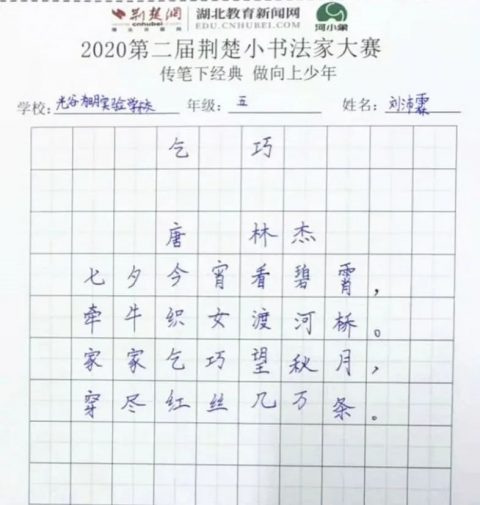 荆楚网 湖北教育新闻网 河小象
cnhubei EDU.CNHUBEI.COM
2020第二届荆楚小书法家大赛
传笔下经典 做向上少年
学校：光谷旭日实验学校 年级：五 姓名：刘沛霖
乞巧
唐 林杰
七夕今宵看碧霄，
牵牛织女渡河桥。
家家乞巧望秋月，
穿尽红丝几万条。